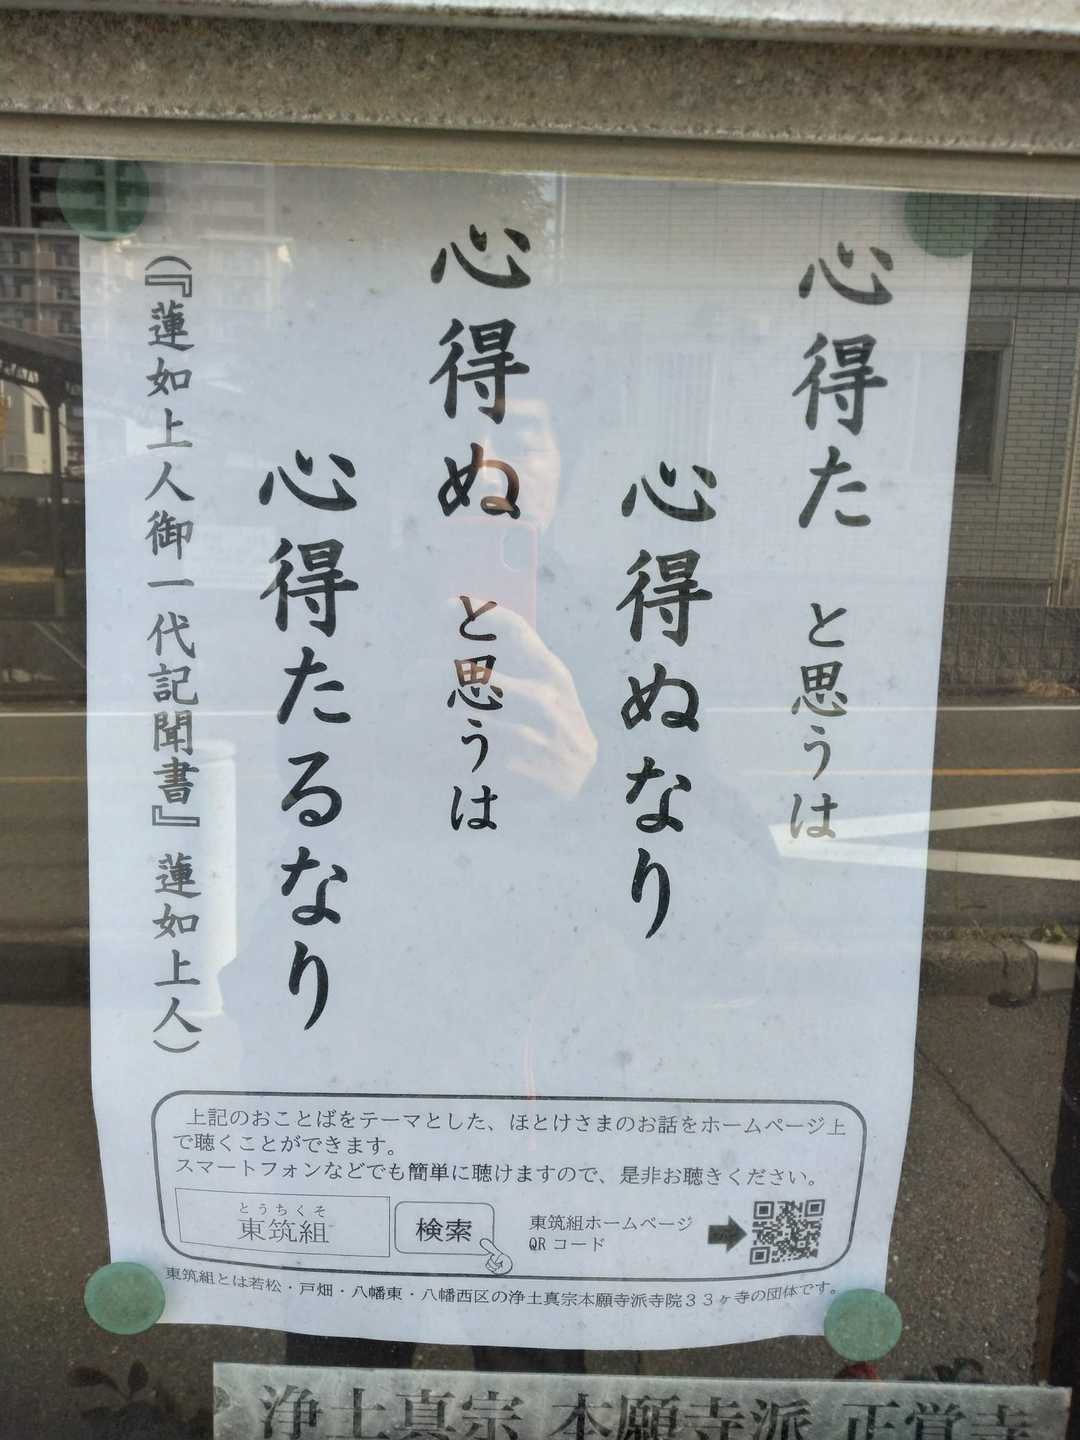 心得た と思うは
心得ぬなり
心得ぬ と思うは
心得たるなり
(『蓮如上人御一代記聞書』 蓮如上人)
上記のおことばをテーマとした、ほとけさまのお話をホームページ上
で聴くことができます。
スマートフォンなどでも簡単に聴けますので、是非お聴きください。
とうちくそ
東筑組
検索
東筑組ホームページ
QRコード
東筑組とは若松・戸畑・八幡東・八幡西区の浄土真宗本願寺派寺院33ヶ寺の団体です。
浄土真宗 本願寺派 正覚寺